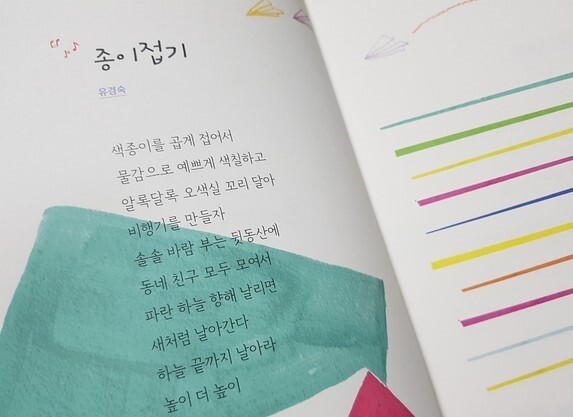 종이접기
유경숙
색종이를 곱게 접어서
물감으로 예쁘게 색칠하고
알록달록 오색실 꼬리 달아
비행기를 만들자
솔솔 바람 부는 뒷동산에
동네 친구 모두 모여서
파란 하늘 향해 날리면
새처럼 날아간다
하늘 끝까지 날아라
높이 더 높이